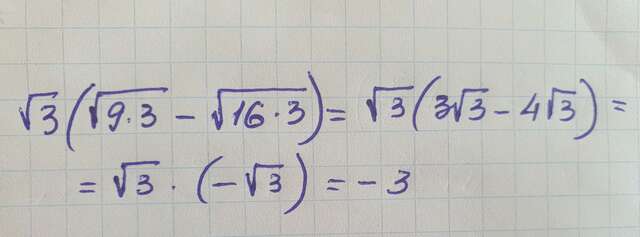 √3(√9·3 − √16·3) = √3(3√3 − 4√3) =
= √3 · (−√3) = −3